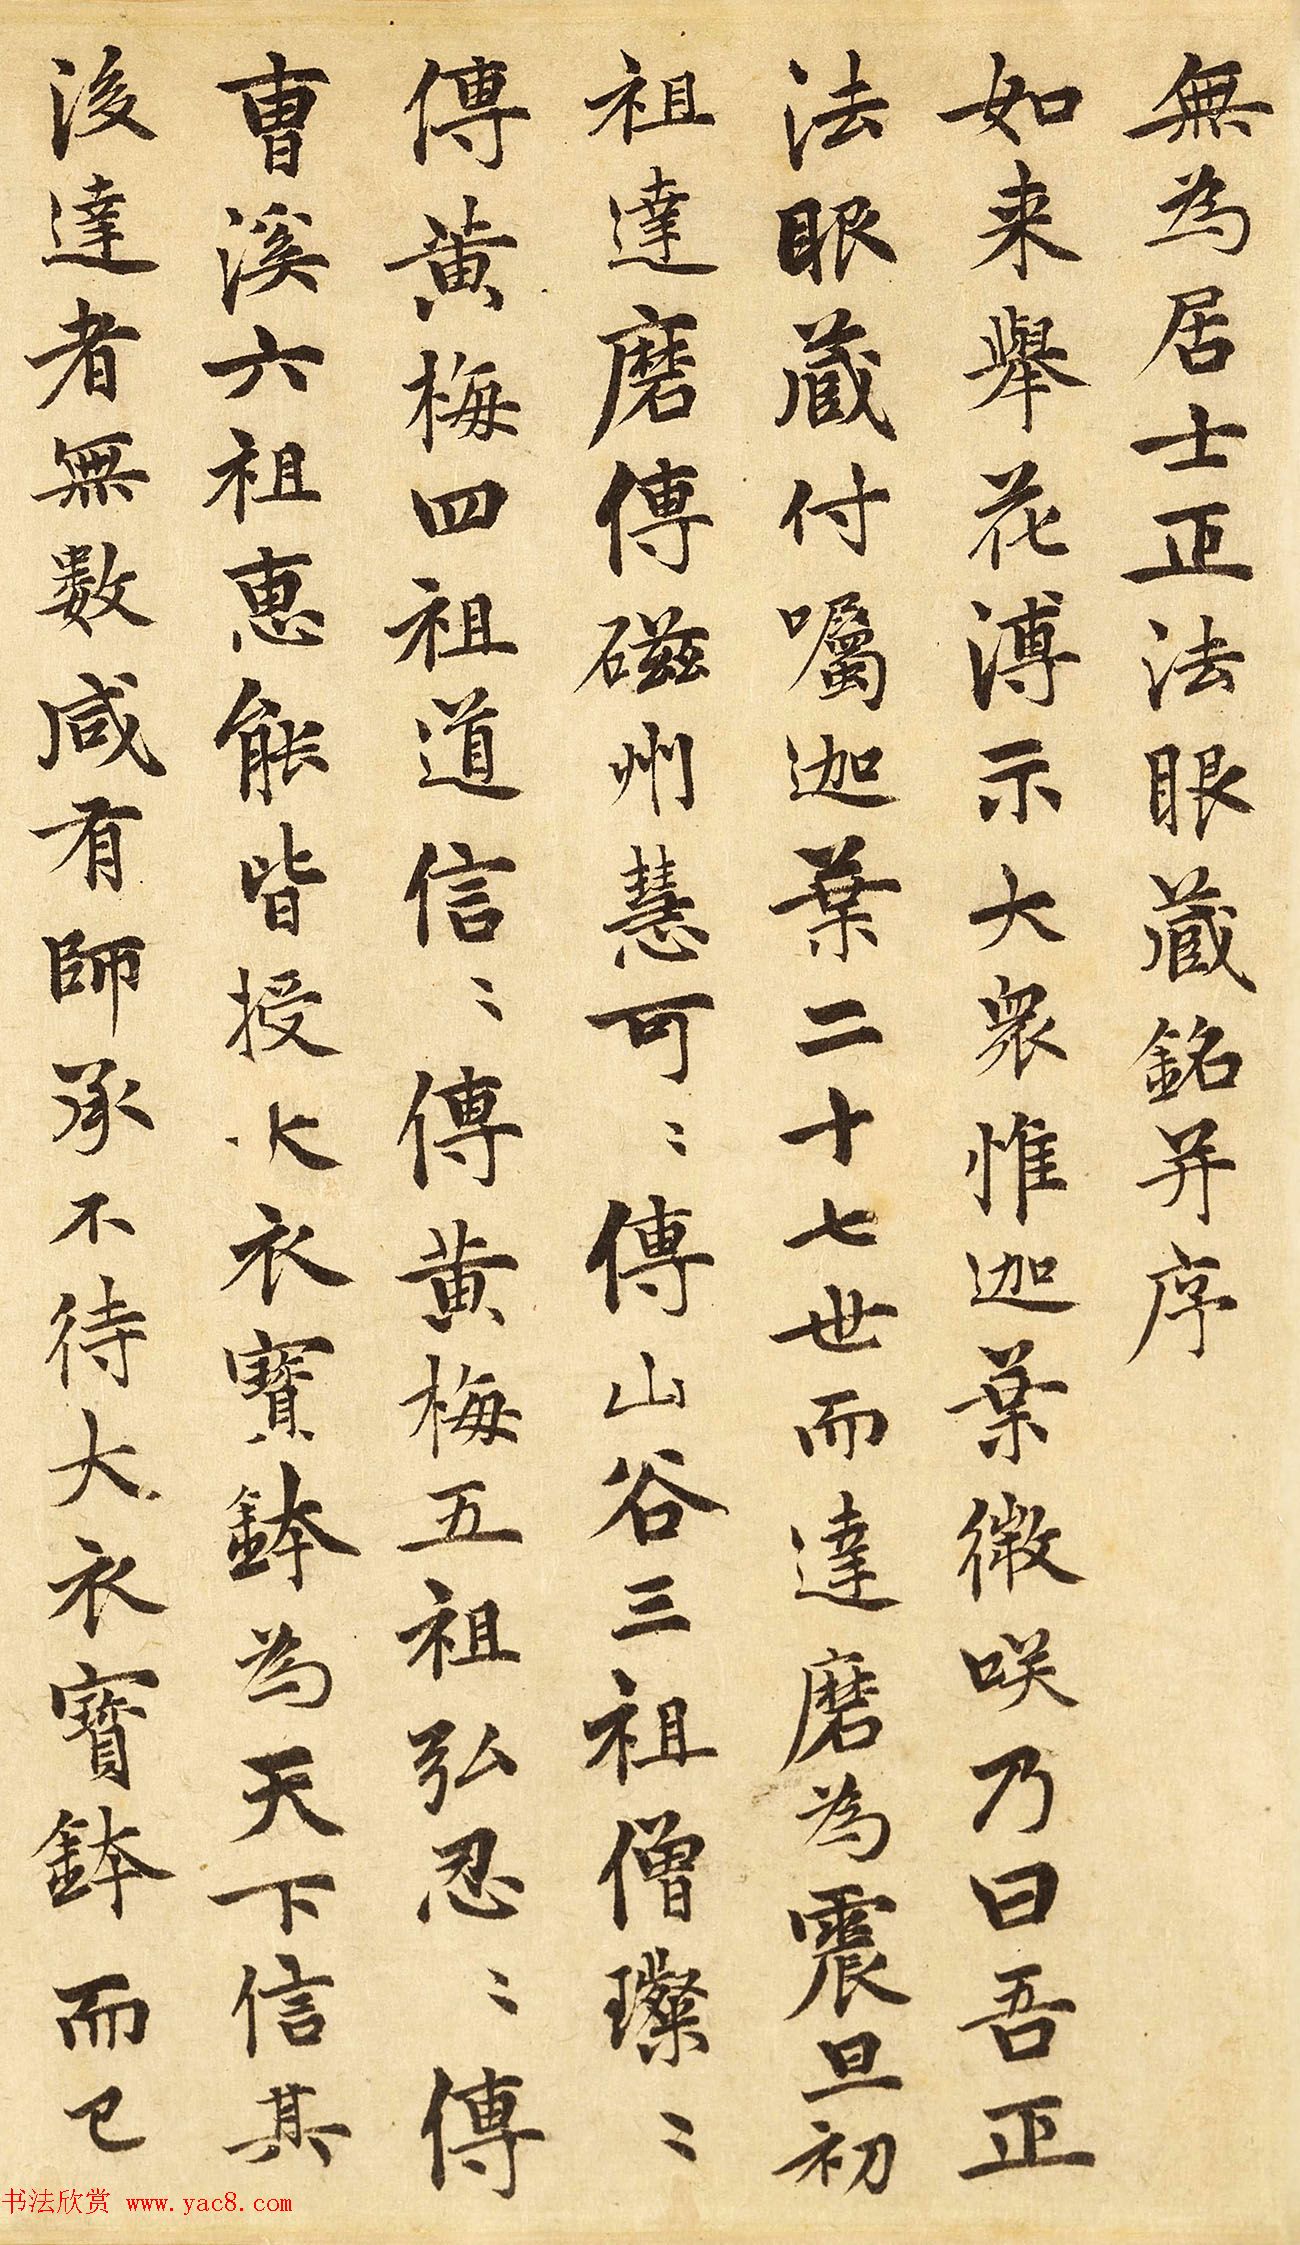 無為居士正法眼蔵銘并序
如来舉花溥示大衆惟迦葉微咲乃曰吾正
法眼蔵付囑迦葉二十七世而達磨為震旦初
祖達磨傳磁州慧可〻傳山谷三祖僧璨〻
傳黄梅四祖道信〻傳黄梅五祖弘忍〻傳
曹溪六祖惠能皆授大衣寳鉢為天下信其
後達者無數咸有師承不待大衣寳鉢而已
书法欣赏 www.yac8.com